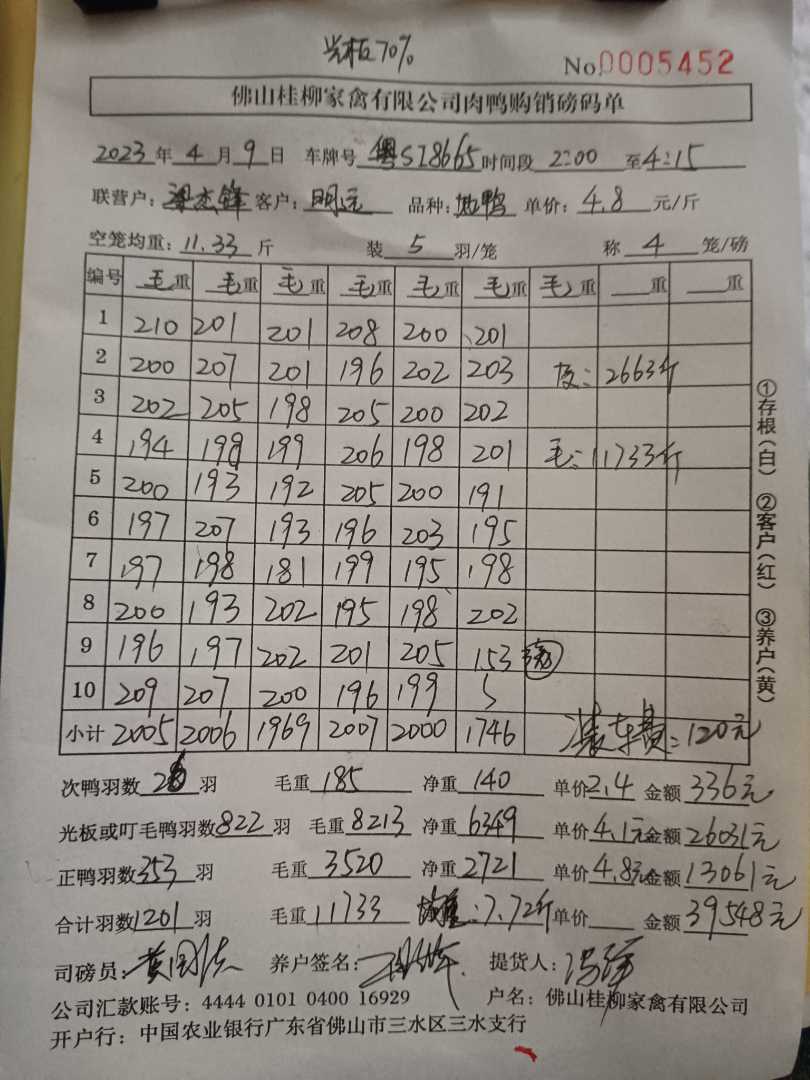 光板70%
No.0005452
佛山桂柳家禽有限公司肉鸭购销磅码单
2023年4月9日 车牌号 粤SI8665 时间段 2:00 至4:15
联营户：梁杰锋 客户：明记 品种： 鸭 单价：4.8元/斤
空笼均重：11.33斤 装5羽/笼 称4笼/磅
编号 毛重 毛重 毛重 毛重 毛重 毛重 毛重 重 重
1 210 201 201 208 200 201
2 200 207 201 196 202 203 皮：2663斤
3 202 205 198 205 200 202
4 194 199 199 206 198 201 毛：11733斤
5 200 193 192 205 200 191
6 197 207 193 196 203 195
7 197 198 181 199 195 198
8 200 193 202 195 198 202
9 196 197 202 201 205 153
10 209 207 200 196 199
小计 2005 2006 1969 2007 2000 1746 装车费：120元
次鸭羽数26羽 毛重185 净重140 单价2.4 金额336元
光板或叮毛鸭羽数822羽 毛重8213 净重6349 单价4.1元 金额26031元
正鸭羽数353羽 毛重3520 净重2721 单价4.8元 金额13061元
合计羽数1201羽 毛重11733 均重：7.72斤 单价 金额39548元
司磅员： 养户签名： 提货人：
公司汇款账号：4444 0101 0400 16929 户名：佛山桂柳家禽有限公司
开户行：中国农业银行广东省佛山市三水区三水支行
①存根(白) ②客户(红) ③养户(黄)